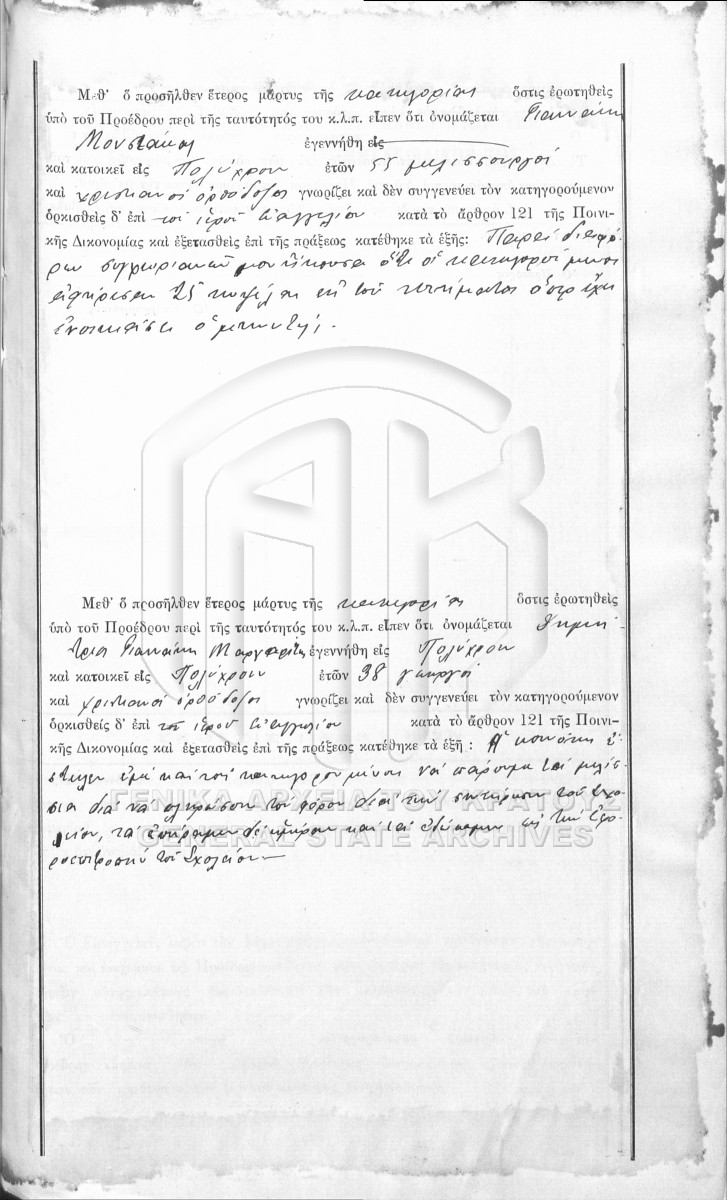 Μεθ' ὃ προσῆλθεν ἕτερος μάρτυς τῆς κατηγορίας ὅστις ἐρωτηθεὶς
ὑπὸ τοῦ Προέδρου περὶ τῆς ταυτότητός του κ.λ.π. εἶπεν ὅτι ὀνομάζεται Γιαννάκη
Μουστάκας ἐγεννήθη εἰς
καὶ κατοικεῖ εἰς Πολύχρουν ἐτῶν 55 μελισσουργός
καὶ χριστιανὸς ὀρθόδοξος γνωρίζει καὶ δὲν συγγενεύει τὸν κατηγορούμενον
ὁρκισθεὶς δ' ἐπὶ τοῦ ἱεροῦ Εὐαγγελίου κατὰ τὸ ἄρθρον 121 τῆς Ποινι-
κῆς Δικονομίας καὶ ἐξετασθεὶς ἐπὶ τῆς πράξεως κατέθηκε τὰ ἑξῆς: Παρὰ διαφό-
ρων συγχωριανῶν μου ἤκουσα ὅτι οἱ κατηγορούμενοι
ἀφῄρεσαν 25 κυψέλας ἐκ τοῦ κτήματος ὅπερ εἶχε
ἐνοικιάσει ὁ μηνυτής.
Μεθ' ὃ προσῆλθεν ἕτερος μάρτυς τῆς κατηγορίας ὅστις ἐρωτηθεὶς
ὑπὸ τοῦ Προέδρου περὶ τῆς ταυτότητός του κ.λ.π. εἶπεν ὅτι ὀνομάζεται Δημή-
τριος Γιαννάκη Μαργαρίτη ἐγεννήθη εἰς Πολύχρουν
καὶ κατοικεῖ εἰς Πολύχρουν ἐτῶν 38 γεωργός
καὶ χριστιανὸς ὀρθόδοξος γνωρίζει καὶ δὲν συγγενεύει τὸν κατηγορούμενον
ὁρκισθεὶς δ' ἐπὶ τοῦ ἱεροῦ Εὐαγγελίου κατὰ τὸ ἄρθρον 121 τῆς Ποινι-
κῆς Δικονομίας καὶ ἐξετασθεὶς ἐπὶ τῆς πράξεως κατέθηκε τὰ ἑξῆ : Ἡ κοινότης ἔ-
στειλεν ἐμὲ καὶ τοὺς κατηγορουμένους νὰ πάρουμε τὰ μελίσ-
σια διὰ νὰ πληρώσουν τὸν φόρον διὰ τὴν συντήρησιν τοῦ Σχο-
λείου, τὰ ἐπήραμεν καὶ τὰ ἐδώσαμεν εἰς τὴν Ἐφο-
ροεπιτροπὴν τοῦ Σχολείου
ΓΕΝΙΚΑ ΑΡΧΕΙΑ ΤΟΥ ΚΡΑΤΟΥΣ
GENERAL STATE ARCHIVES